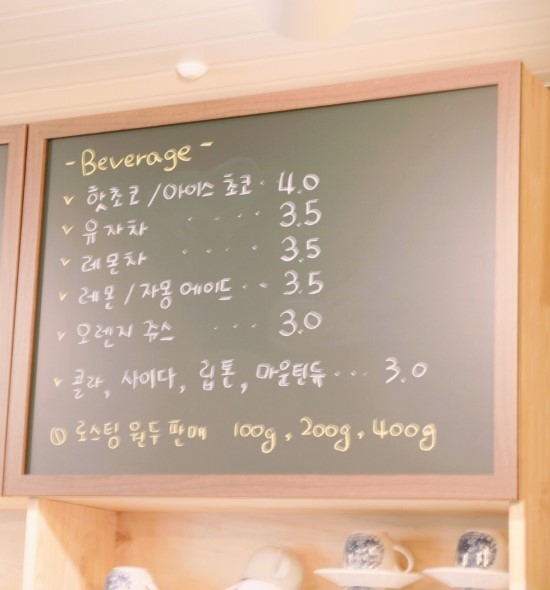 - Beverage -
✓ 핫초코 / 아이스 초코 · 4.0
✓ 유자차 · · · · 3.5
✓ 레몬차 · · · · 3.5
✓ 레몬 / 자몽 에이드 · · 3.5
✓ 오렌지 쥬스 · · · 3.0
✓ 콜라, 사이다, 립톤, 마운틴듀 · · · 3.0
로스팅 원두 판매 100g, 200g, 400g